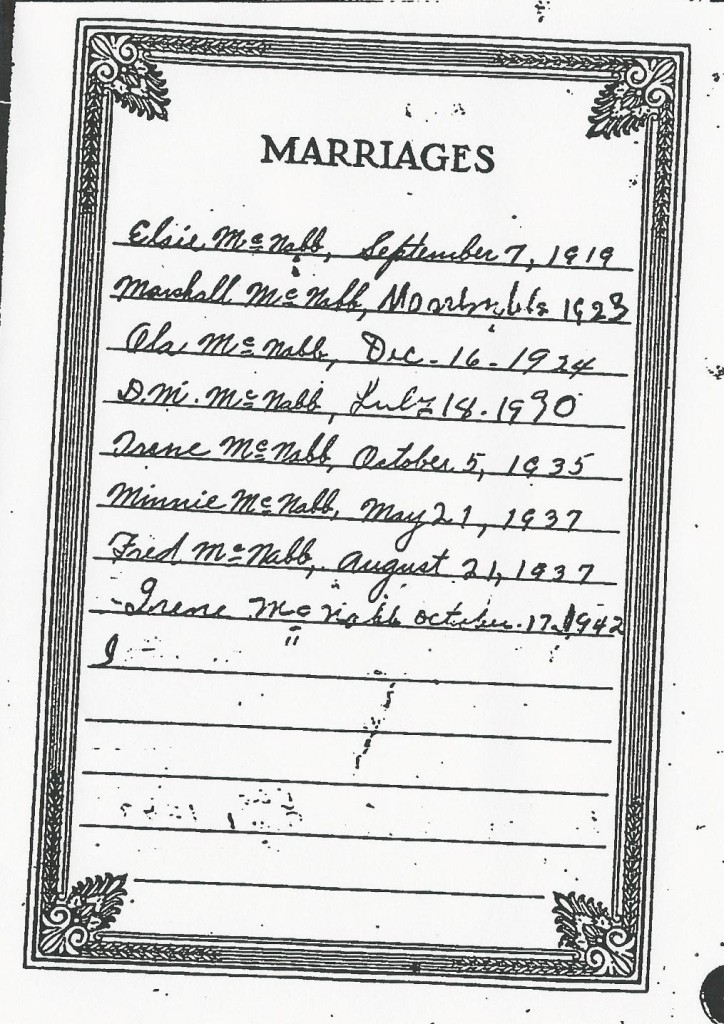 MARRIAGES
Elsie McNabb, September 7, 1919
Marshall McNabb, 1923
Ola McNabb, Dec. 16 - 1924
D.M. McNabb, July 18 - 1930
Irene McNabb, October 5, 1935
Minnie McNabb, May 21, 1937
Fred McNabb, August 21, 1937
- Irene McNabb October. 17. 1942
I